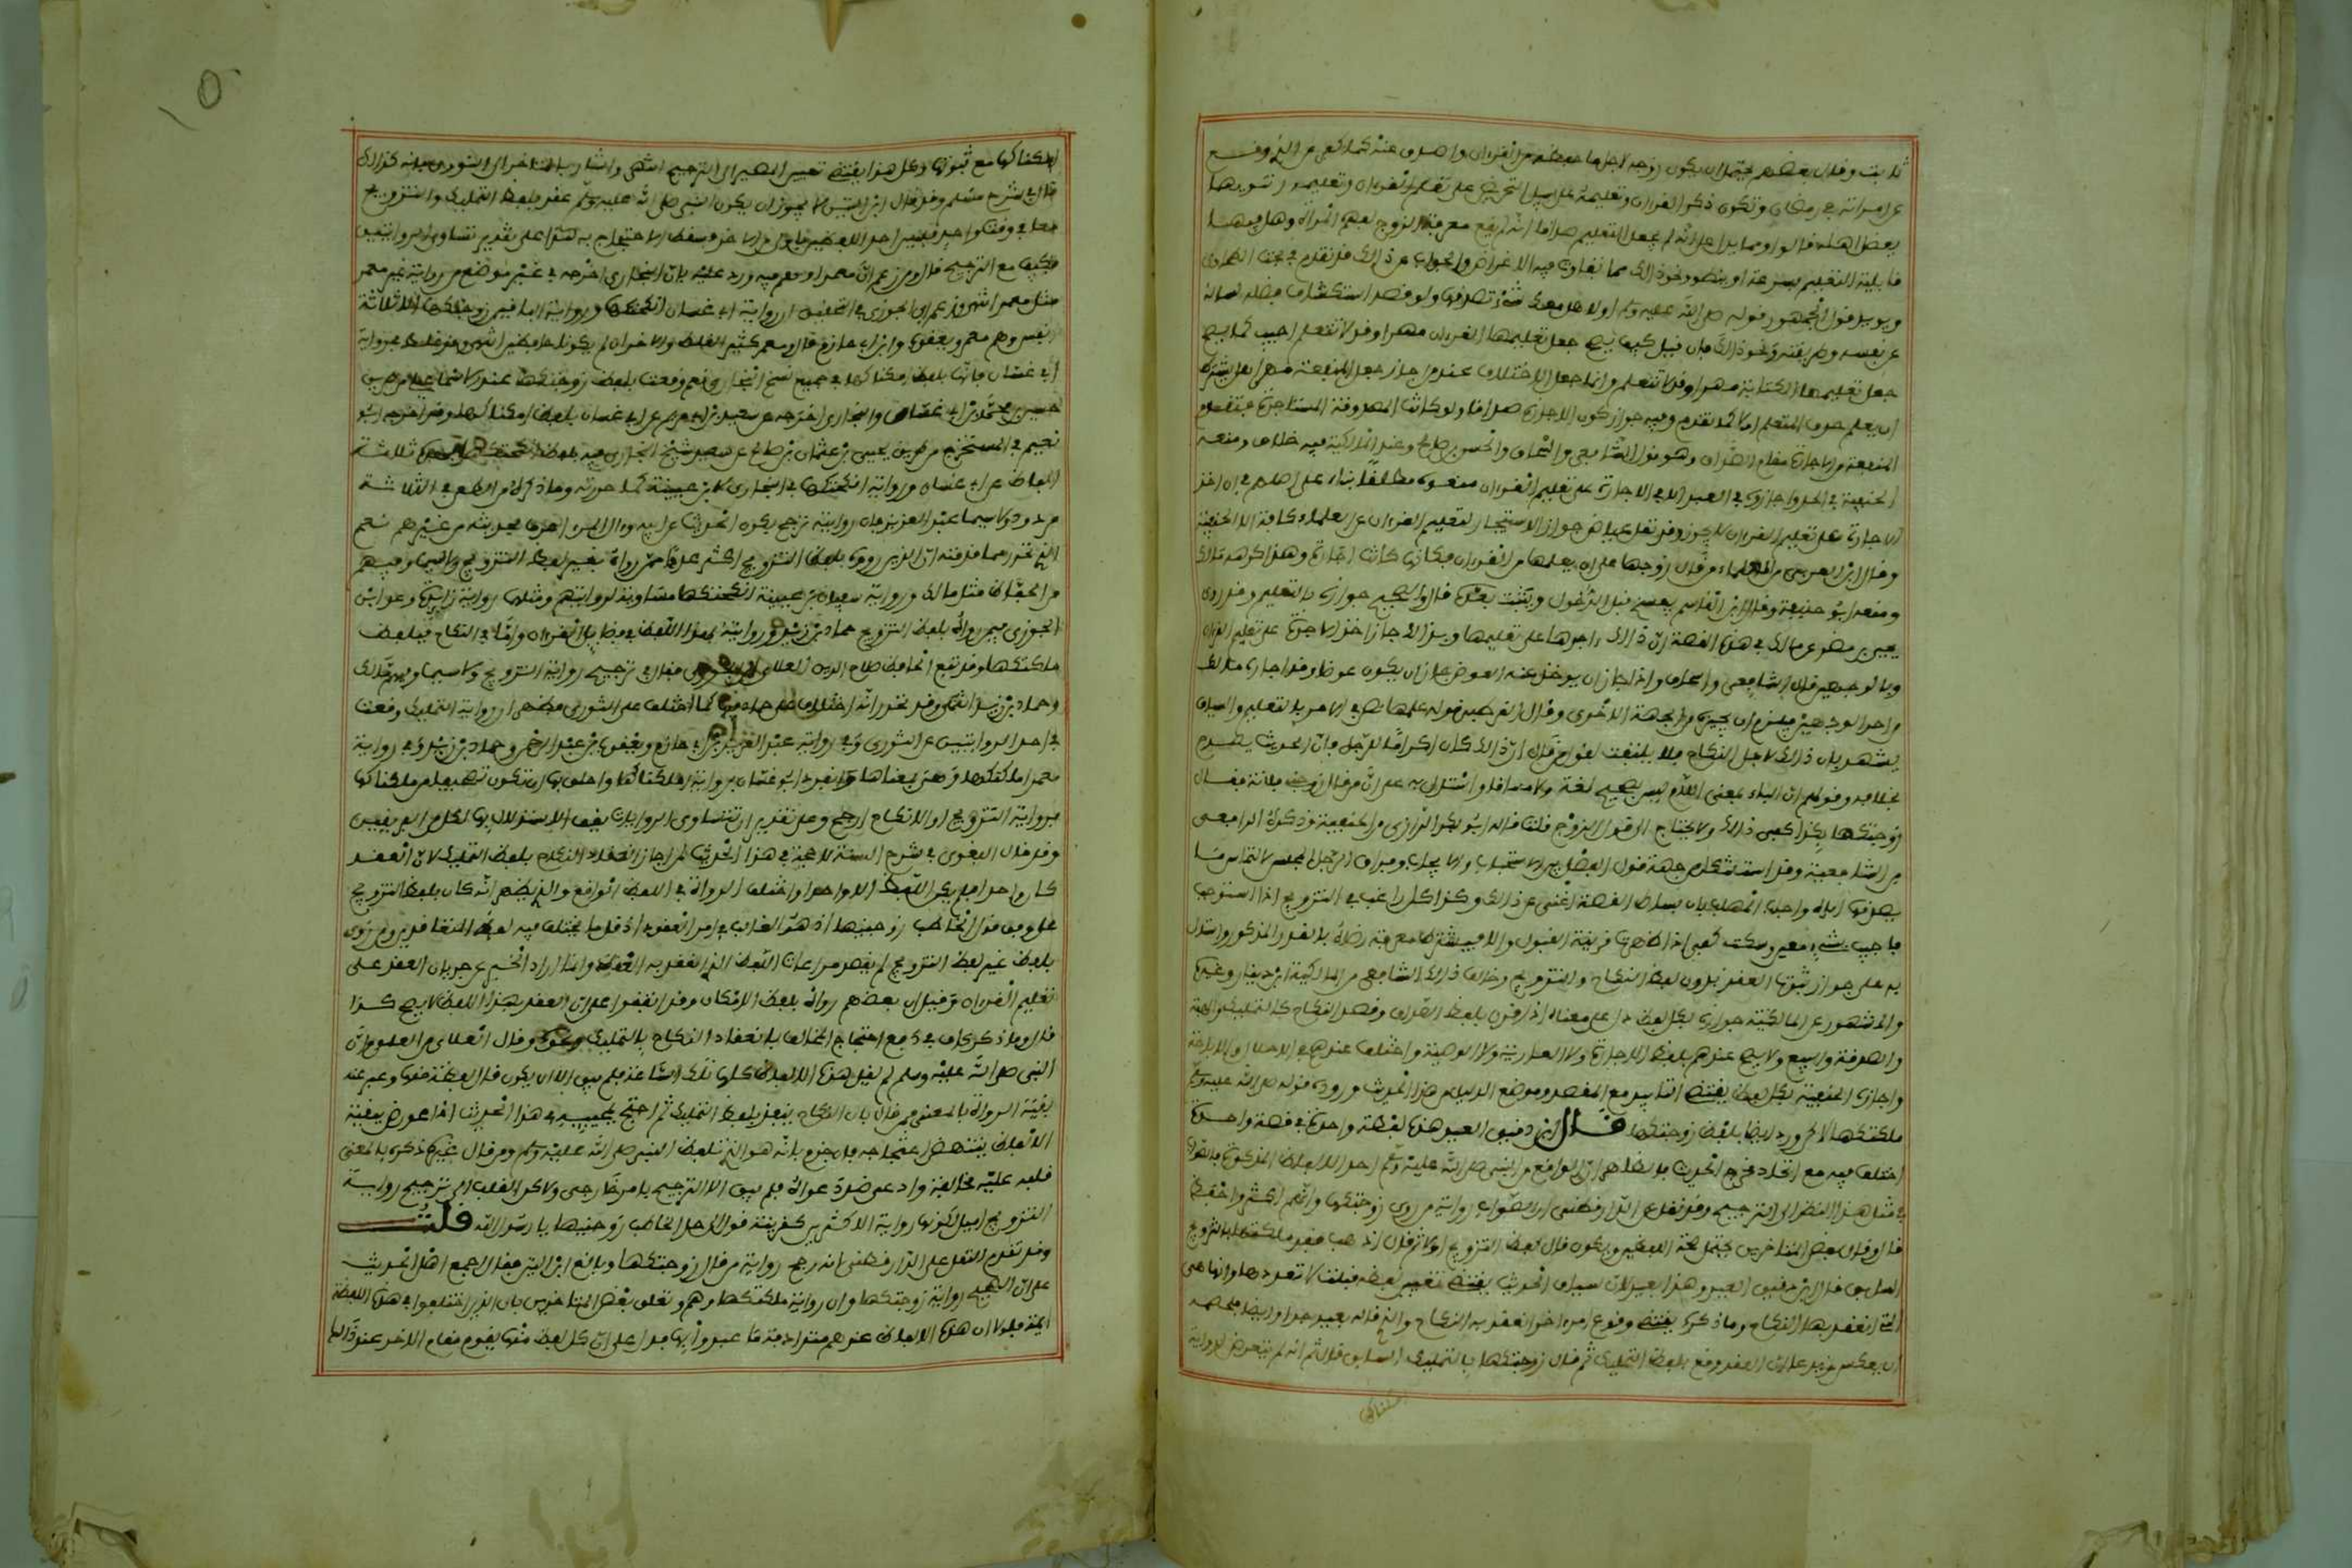 ثابت وقال بعضهم يحتمل ان يكون زوجه لاجل ما حفظه من القرءان واصدق عنه كما كفر عن الذي وقع
على امراته في رمضان وتكون ذكر القران وتعليمه على سبيل التحريض على تعلم القرءان وتعليمه وتنويها
بفضل اهله قالوا ومما يدل على انه لم يجعل التعليم صداقا انه لم يقع معرفة الزوج بفهم المراة وهل فيها
قابلية التعليم بسرعة او ببطء ونحو ذالك مما تتفاوت فيه الاغراض والجواب عن ذالك قد تقدم في بحث الطحاوي
ويؤيد قول الجمهور قوله صلى الله عليه وسلم اولا هل معك شيء تصدقها ولو قصد استكشاف فضله لساله
عن نسبه وطريقته ونحو ذالك فان قيل كيف يصح جعل تعليمها القرءان مهرا وقد لا تتعلم اجيب كما يصح
جعل تعليمها الكتابة مهرا وقد لا تتعلم وانما حصل الاختلاف عند من اجاز جعل المنفعة مهرا هل يشترط
ان يعلم حذق المتعلم ام لا كما تقدم وفيه جواز كون الاجارة صداقا ولو كانت المصدوقة المستاجرة فتقوم
المنفعة من الاجارة مقام الصداق وهو قول الشافعي واسحاق والحسن بن صالح وعند المالكية فيه خلاف ومنعه
الحنفية في الحر واجازوه في العبد الا في الاجارة على تعليم القرءان فمنعوه مطلقا بناء على اصلهم في ان اخذ
الاجارة على تعليم القرءان لا يجوز وقد نقل عياض جواز الاستيجار لتعليم القرءان عن العلماء كافة الا الحنفية
وقال ابن العربي من العلماء من قال زوجها على ان يعلمها من القرءان فكانها كانت اجارة وهذا كرهه مالك
ومنعه ابو حنيفة وقال ابن القاسم يفسخ قبل الدخول ويثبت بعده قال والصحيح جوازه بالتعليم وقد روى
يحيى بن مضر عن مالك في هذه القصة ان ذالك اجرها على تعليمها وبذالك جاز اخذ الاجرة على تعليم القران
وبالوجهين قال الشافعي واسحاق واذا جاز ان يوخذ عنه العوض جاز ان يكون عوضا وقد اجازه مالك
من احد الوجهين فيلزم ان يجيزه من الجهة الاخرى وقال القرطبي قوله علمها نص في الامر بالتعليم والسياق
يشهد بان ذالك لاجل النكاح فلا يلتفت لقول من قال ان ذالك كان اكراما للرجل فان الحديث يصرح
بخلافه وقولهم ان الباء بمعنى اللام ليس بصحيح لغة ولا مساقا واستدل به على ان من قال زوجني فلانة فقال
زوجتكها بكذا كفى ذالك ولا يحتاج الى قول الزوج قبلت قاله ابو بكر الرازي من الحنفية وذكره الرافعي
من الشافعية وقد استشكل من جهة طول الفصل بين الاستيجاب والايجاب وفراق الرجل المجلس لالتماس ما
يصدقها اياه واجاب المهلب بان بساط القصة اغنى عن ذالك وكذا كل راغب في التزويج اذا استوجب
فاجيب بشيء معين وسكت كفى اذا ظهر قرينة القبول والا فيشترط معرفة رضاه بالقدر المذكور واستدل
به على جواز ثبوت العقد بدون لفظ النكاح والتزويج وخالف ذالك الشافعي من المالكية ابن دينار وغيره
والمشهور عن المالكية جوازه بكل لفظ دل على معناه اذا قرن بلفظ الصداق وقصد النكاح كالتمليك والهبة
والصدقة والبيع ولا يصح عندهم بلفظ الاجارة ولا العارية ولا الوصية واختلف عندهم في الاحلال والاباحة
واجازه الحنفية بكل لفظ يقتضي التابيد مع القصد وموضع الدليل من هذا الحديث ورود قوله صلى الله عليه وسلم
ملكتكها لاكن ورد ايضا بلفظ زوجتكها قال ابن دقيق العيد هذه لفظة واحدة في قصة واحدة
اختلف فيه مع اتحاد مخرج الحديث فالظاهر ان الواقع من النبي صلى الله عليه وسلم احد الالفاظ المذكورة فالصواب
في مثل هذا النظر الى الترجيح وقد نقل عن الدارقطني ان الصواب رواية من روى زوجتكها وانهم اكثر واحفظ
قال وقال بعض المتاخرين يحتمل صحة اللفظين ويكون قال لفظ التزويج اولا ثم قال اذهب فقد ملكتكها بالتزويج
السابق قال ابن دقيق العيد وهذا بعيد لان سياق الحديث يقتضي تعيين لفظه قبلت لا تعددها وانها هي
التي انعقد بها النكاح وما ذكره يقتضي وقوع امر اخر انعقد به النكاح والذي قاله بعيد جدا وايضا فلخصمه
ان يعكس ويدعي ان العقد وقع بلفظ التمليك ثم قال زوجتكها بالتمليك السابق قال ثم انه لم يتعرض لرواية
امكناكها
امكناكها مع ثبوتها وكل هذا يقتضي تعيين المصير الى الترجيح انتهى واشار بالمتاخر الى النووي فانه كذالك
قال في شرح مسلم وقد قال ابن التين لا يجوز ان يكون النبي صلى الله عليه وسلم عقد بلفظ التمليك والتزويج
معا في وقت واحد فليس احد اللفظين باولى من الاخر فسقط الاحتجاج به هذا على تقدير تساوي الروايتين
فكيف مع الترجيح قال ومن زعم ان معمرا وهم فيه ورد عليه بان البخاري اخرجه في غير موضع من رواية غير معمر
مثل معمر انتهى وزعم ابن الجوزي في التحقيق ان رواية ابي غسان انكحتكها ورواية الباقين زوجتكها الا ثلاثة
انفس وهم معمر ويعقوب وابن ابي حازم قال ومعمر كثير الغلط والاخران لم يكونا حافظين انتهى وقد غلط في رواية
ابي غسان فانها بلفظ امكناكها في جميع نسخ البخاري نعم وقعت بلفظ زوجتكها عند الاسماعيلي من طريق
حسين بن محمد عن ابي غسان والبخاري اخرجه عن سعيد بن ابي مريم عن ابي غسان بلفظ امكناكها وقد اخرجه ابو
نعيم في المستخرج من طريق يحيى بن عثمان بن صالح عن سعيد شيخ البخاري فيه بلفظ انكحتكها فهذه ثلاثة
الفاظ عن ابي غسان ورواية انكحتكها في البخاري لابن عيينة كما حررته وما ذكره من الطعن في الثلاثة
مردود ولا سيما عبد العزيز فان روايته ترجح بكون الحديث عن ابيه وءال المرء اعرف بحديثه من غيرهم نعم
الذي تحرر مما قدمته ان الذين رووه بلفظ التزويج اكثر عددا ممن رواه بغير لفظ التزويج ولا سيما وفيهم
من الحفاظ مثل مالك ورواية سفيان بن عيينة انكحتكها مساوية لروايتهم ومثلها رواية زايدة وعد ابن
الجوزي فيمن رواه بلفظ التزويج حماد بن زيد وروايته بهذا اللفظ في فضايل القرءان واما في النكاح فبلفظ
ملكتكها وقد تبع الحافظ صلاح الدين العلاي ابن الجوزي فقال في ترجيح رواية التزويج ولا سيما وفيهم مالك
وحماد بن زيد انتهى وقد تحرر انه اختلف على حماد فيها كما اختلف على الثوري فظهر ان رواية التمليك وقعت
في احدى الروايتين عن الثوري وفي رواية عبد العزيز بن ابي حازم ويعقوب بن عبد الرحمن وحماد بن زيد وفي رواية
معمر ملكتكها وهي بمعناها وانفرد ابو غسان برواية امكناكها واخلق بها ان تكون تصحيفا من ملكناكها
فرواية التزويج او الانكاح ارجح وعلى تقدير ان تتساوى الروايات يقف الاستدلال بها لكل من الفريقين
وقد قال البغوي في شرح السنة لا حجة في هذا الحديث لمن اجاز انعقاد النكاح بلفظ التمليك لان العقد
كان واحدا فلم يكن اللفظ الا واحدا واختلف الرواة في اللفظ الواقع والذي يظهر انه كان بلفظ التزويج
على وفق قول الخاطب زوجنيها اذ هو الغالب في امر العقود اذ قل ما يختلف فيه لفظ المتعاقدين ومن روى
بلفظ غير لفظ التزويج لم يقصد مراعاة اللفظ الذي انعقد به العقد وانما اراد الخبر عن جريان العقد على
تعليم القرءان وقيل ان بعضهم رواه بلفظ الامكان وقد اتفقوا على ان العقد بهذا اللفظ لا يصح كذا
قال وما ذكر كاف في دفع احتجاج المخالف بانعقاد النكاح بالتمليك ونحوه وقال العلاي من المعلوم ان
النبي صلى الله عليه وسلم لم يقل هذه الالفاظ كلها تلك الساعة فلم يبق الا ان يكون قال لفظة منها وعبر عنه
بقية الرواة بالمعنى فمن قال بان النكاح ينعقد بلفظ التمليك ثم احتج بمجيبه في هذا الحديث اذا عورض ببقية
الالفاظ لم ينتهض احتجاجه فان جزم بانه هو الذي تلفظ به النبي صلى الله عليه وسلم ومن قال غيره ذكره بالمعنى
قلبه عليه مخالفه وادعى ضد دعواه فلم يبق الا الترجيح بامر خارجي ولاكن القلب الى ترجيح رواية
التزويج اميل لكونها رواية الاكثرين كقرينة قول الرجل الخاطب زوجنيها يا رسول الله قلت
وقد تقدم النقل على الدارقطني انه رجح رواية من قال زوجتكها وبالغ ابن التين فقال اجمع اهل الحديث
على ان الصحيح رواية زوجتكها وان رواية ملكتكها وهم وتعلق بعض المتاخرين بان الذين اختلفوا في هذه اللفظة
ايمة فلولا ان هذه الالفاظ عندهم مترادفة ما عبروا بها فدل على ان كل لفظ منها يقوم مقام الاخر عند ذالك